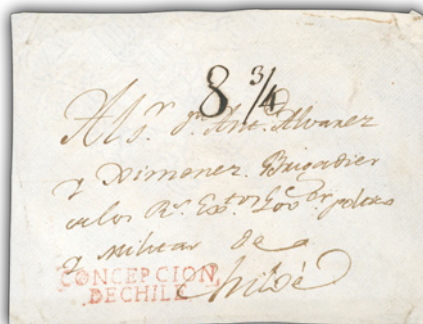 8 3/4
Al Sr. Dn. Ant. Alvarez
y Ximenez. Brigadier
de los Rs. Extos. Govor. politico
y Militar de
Chiloé
CONCEPCION
DECHILE